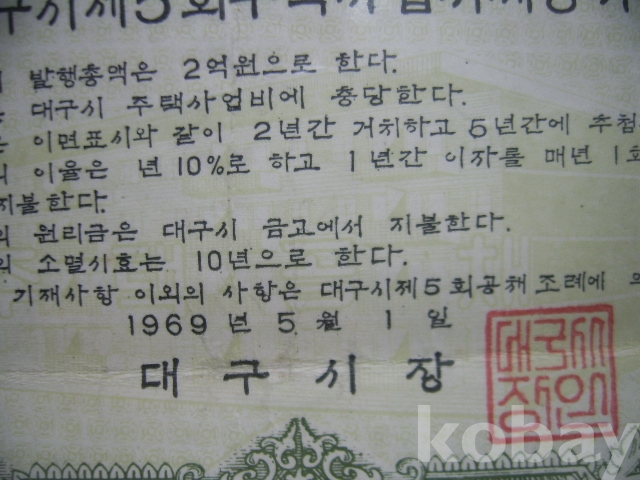 구시제5회주택사업
발행총액은 2억원으로 한다.
대구시 주택사업비에 충당한다.
이면표시와 같이 2년간 거치하고 5년간에 추첨
의 이율은 년 10%로 하고 1년간 이자를 매년 1회
지불한다.
의 원리금은 대구시 금고에서 지불한다.
의 소멸시효는 10년으로 한다.
기재사항 이외의 사항은 대구시제5회공채조례에
1969년 5월 1일
대구시장
대구시
장인
kobay